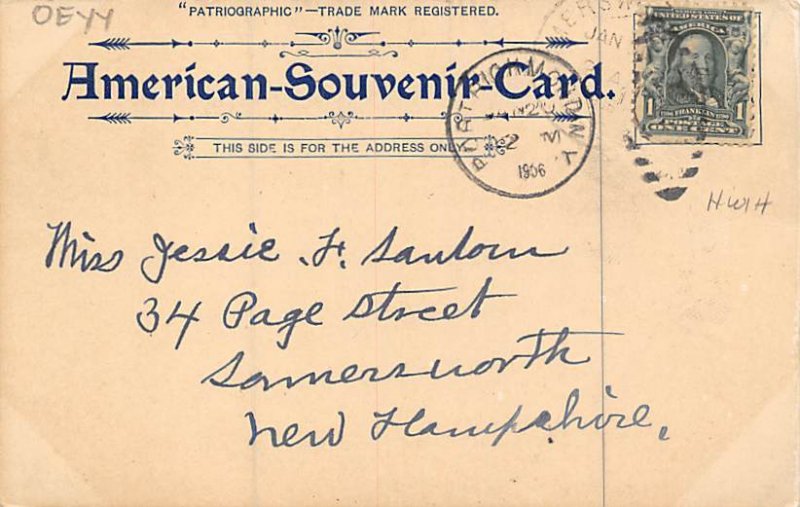 OEYY
"PATRIOGRAPHIC"—TRADE MARK REGISTERED.
American-Souvenir-Card.
THIS SIDE IS FOR THE ADDRESS ONLY
PORT RICHMOND N.Y.
1906
JAN
UNITED STATES OF
AMERICA
1 FRANKLIN 1
ONE CENT
HWH
Miss Jessie H. Santom
34 Page Street
Somersworth
New Hampshire,